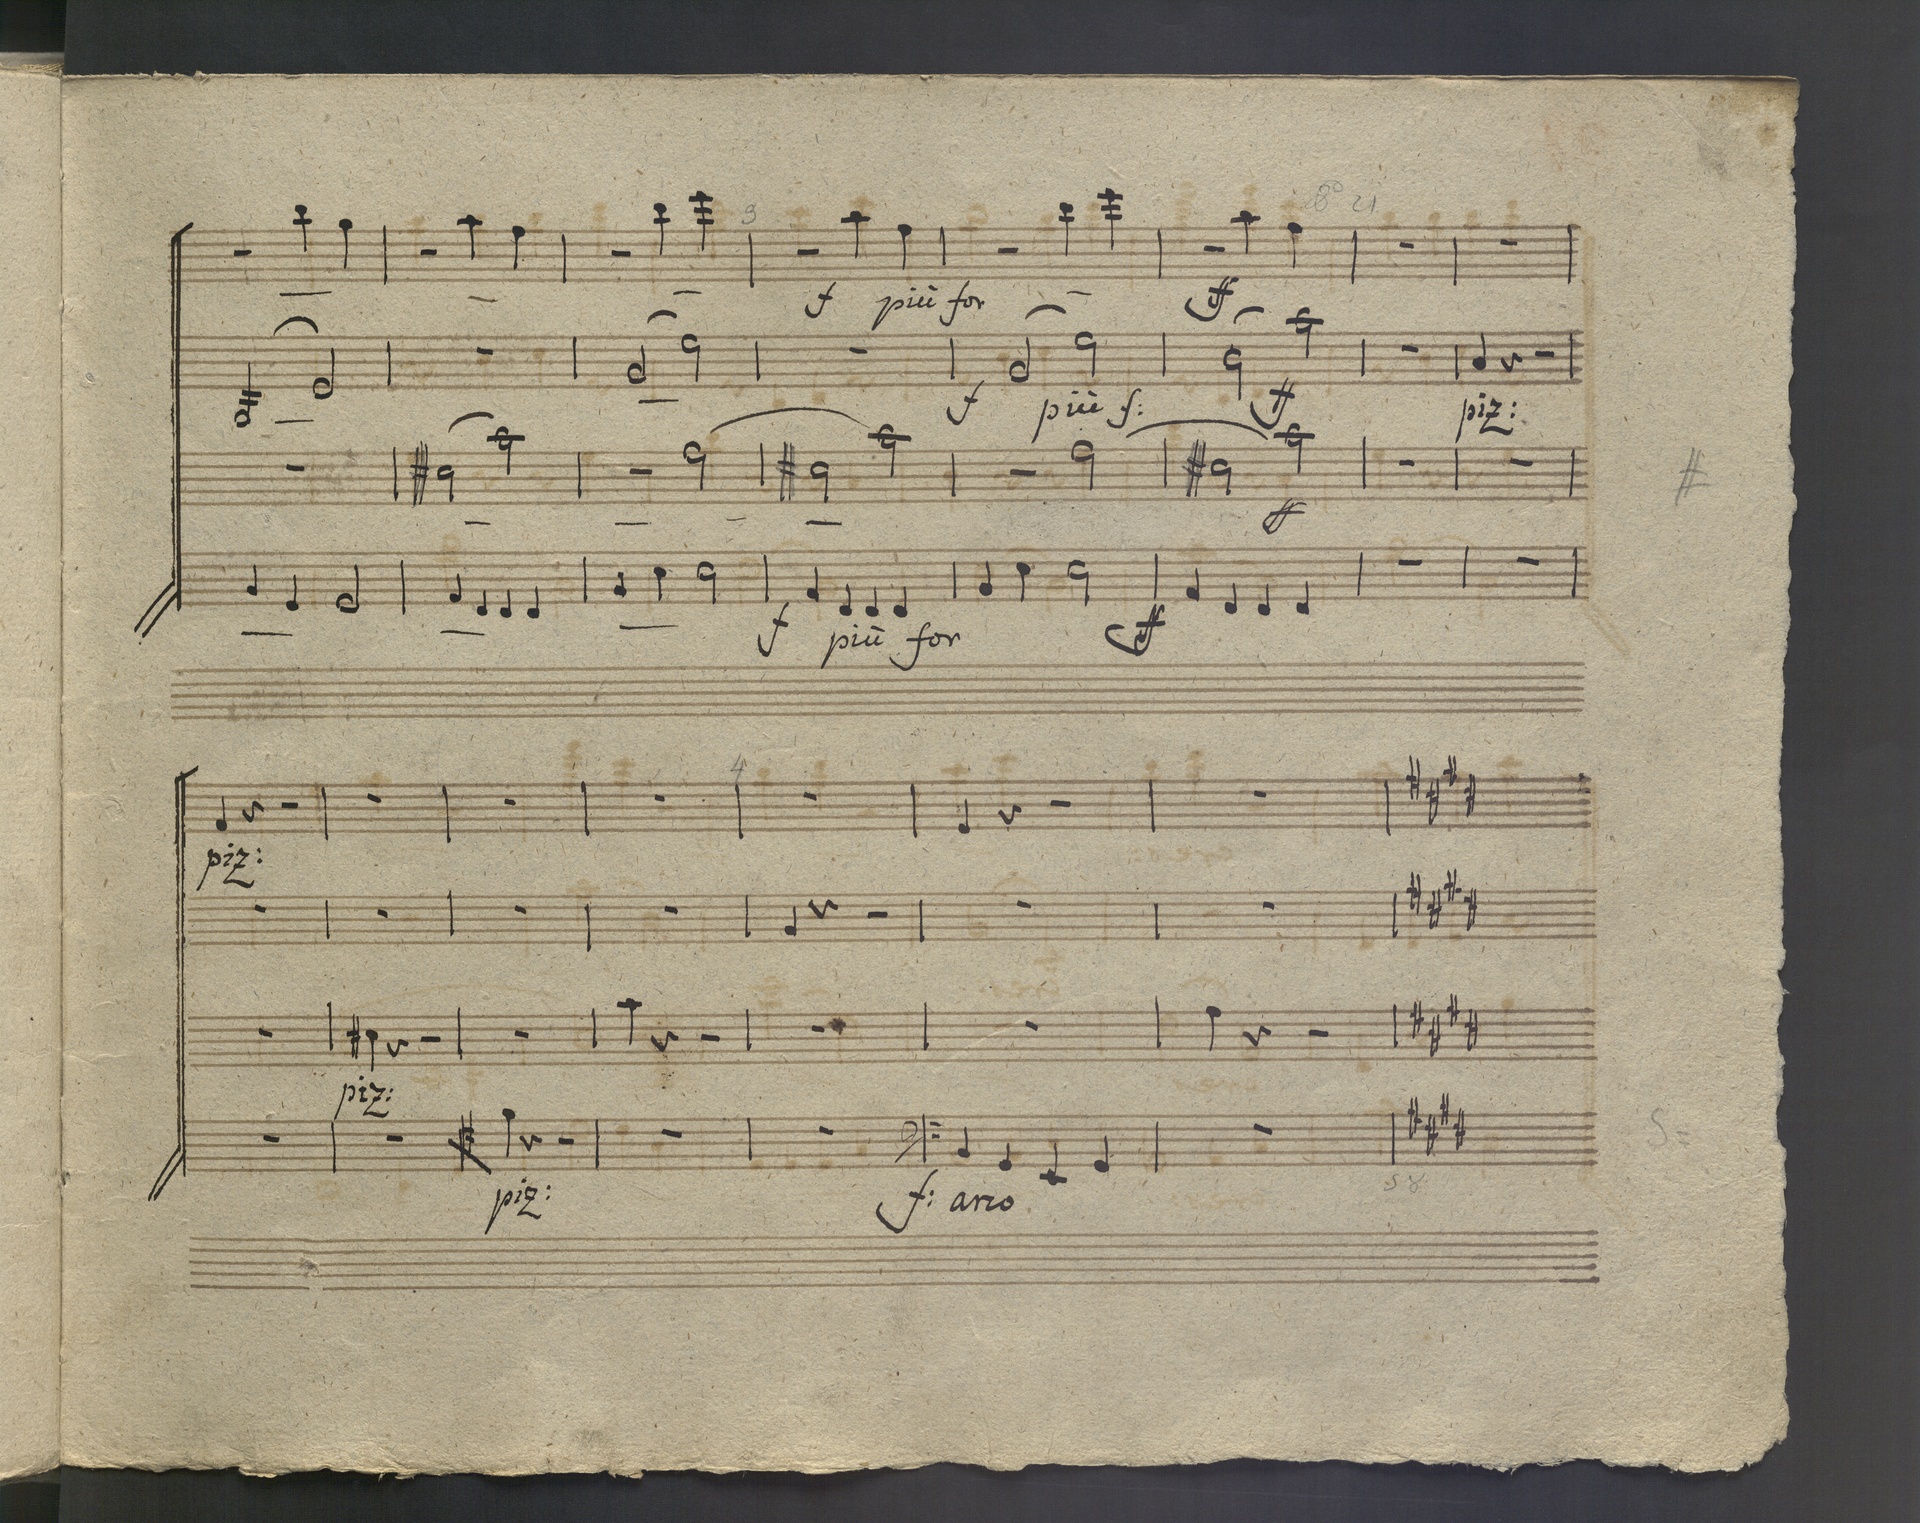 9
21
f più for ff
f più f: ff piz:
ff
f più for ff
4
piz:
piz:
piz:
f: arco